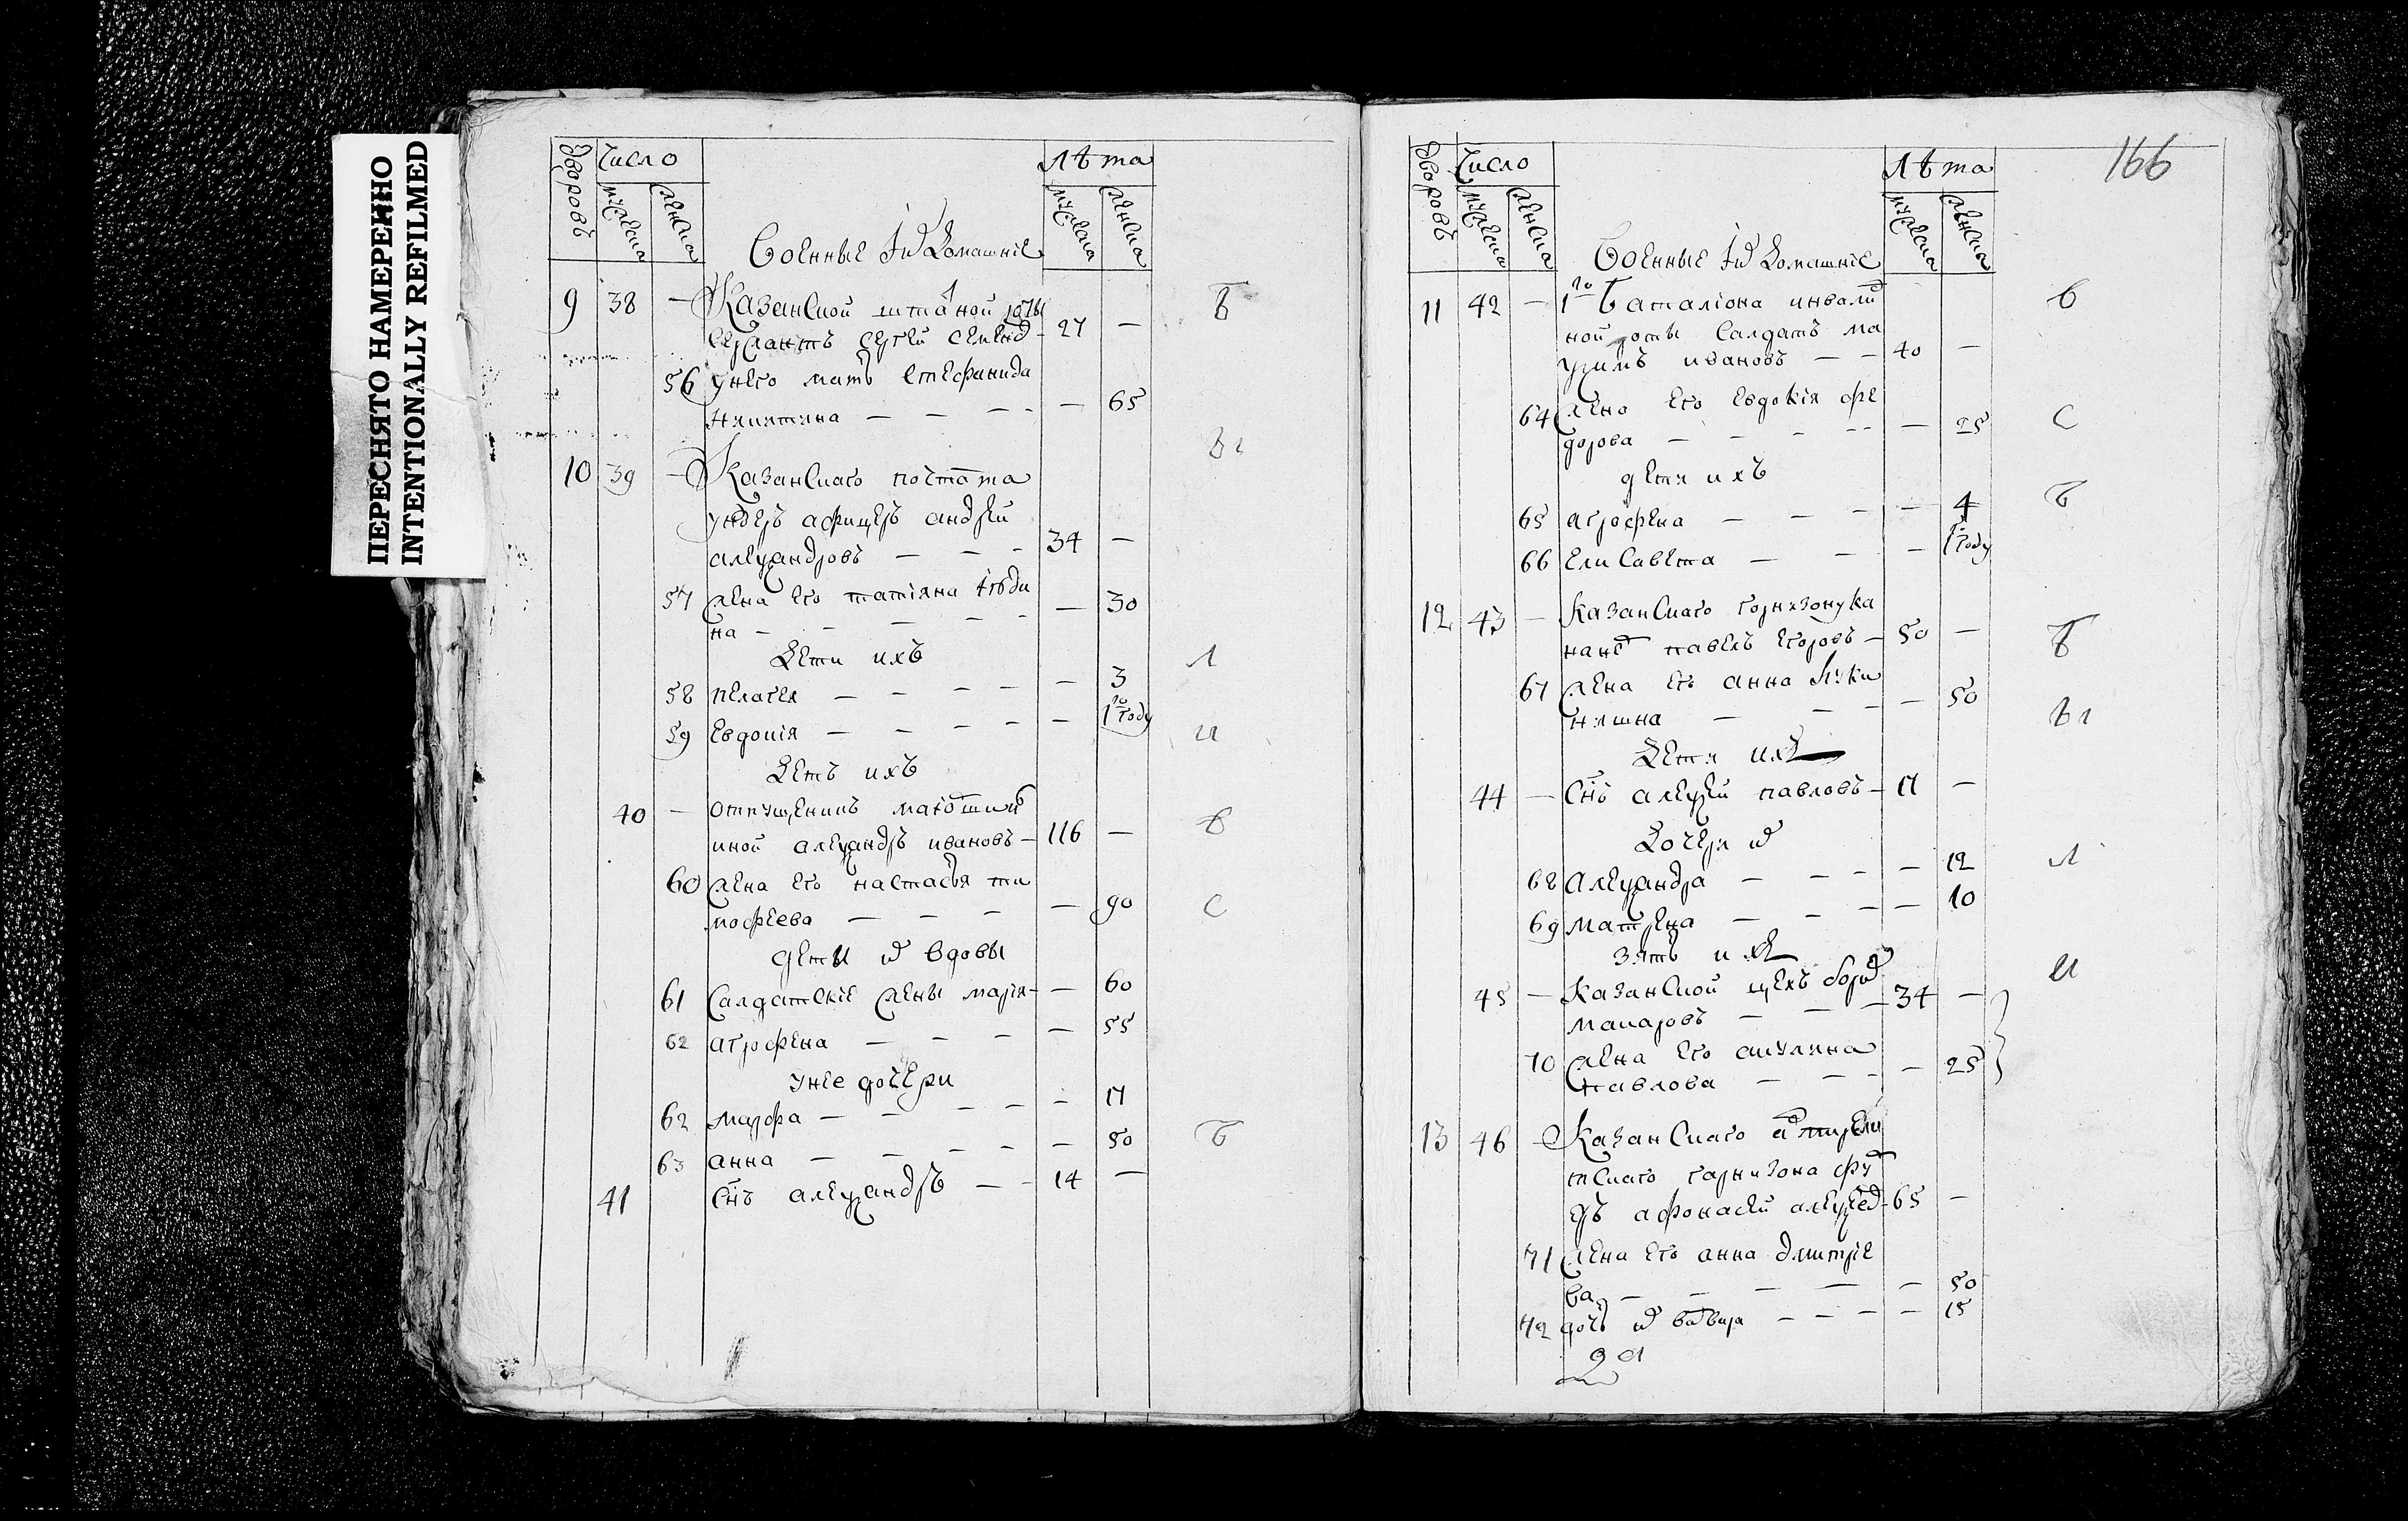 ПЕРЕСНЯТО НАМЕРЕННО
INTENTIONALLY REFILMED
дворовъ
Число
мужеска
женска
Военные
домашніе
Лѣта
мужеска
женска
9 38 — Казанской штатной роты
сержантъ сергей 27 —
56 унего мать стефанида
никитина — — — — 65
10 39 — Казанскаго почтамта
ундеръ афицеръ андрей
александровъ — — — 34 —
57 жена его татіяна
на — — — — — 30
Дети ихъ
58 пелагея — — — — — 3
59 евдокія — — — — — 1го году
ихъ
40 — отпущеникъ
александръ ивановъ — 116 —
60 жена его настасья ти
мофеева — — — — 90
дети вдовы
61 Салдатскіе жены марія — — 60
62 агрофена — — — — 55
унее дочери
62 марфа — — — — — 17
63 анна — — — — — 50
41 Снъ александръ — — 14 —
166
дворовъ
Число
мужеска
женска
Военные
домашніе
Лѣта
мужеска
женска
11 42 — 1го баталіона инвалид
ной роты Салдатъ ма
ксимъ ивановъ — — 40 —
64 жена его евдокія фе
дорова — — — — — 25
дети ихъ
65 агрофена — — — — 4
66 елисавета — — — 1 году
12 43 — Казанскаго
павелъ егоровъ — 50 —
67 жена его анна луки
нишна — — — — 50
Дети ихъ
44 — Снъ алексей павловъ — 17 —
Дочери
68 александра — — — — 12
69 матрена — — — — 10
зять ихъ
45 — Казанской цехъ
макаровъ — — — 34 —
70 жена его акулина
павлова — — — — 25
13 46 — Казанскаго
гарнизона
афонасей 65 —
71 жена его анна дмитріе
ва — — — — — 50
72 дочь — — — — 15